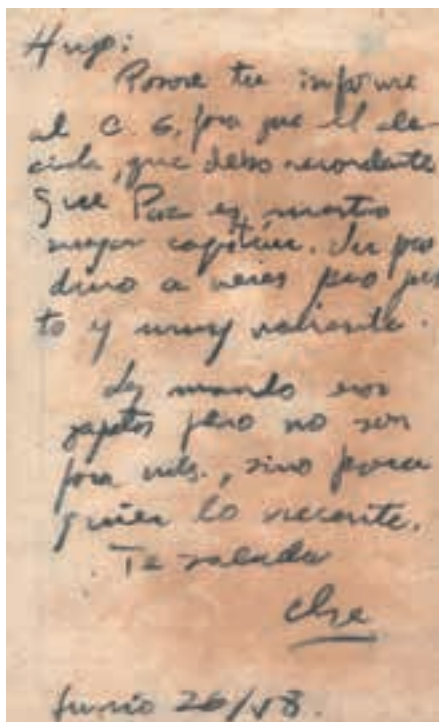 Hugo:
Pasaré tu informe
al C. G. para que él de
cida, que debo recordarte
que Paz es nuestro
mejor capitán. Un poco
duro a veces pero jus
to y muy valiente.
Les mando esos
zapatos pero no son
para uds., sino para
quien lo necesite.
Te saluda
Che
Junio 26/58.